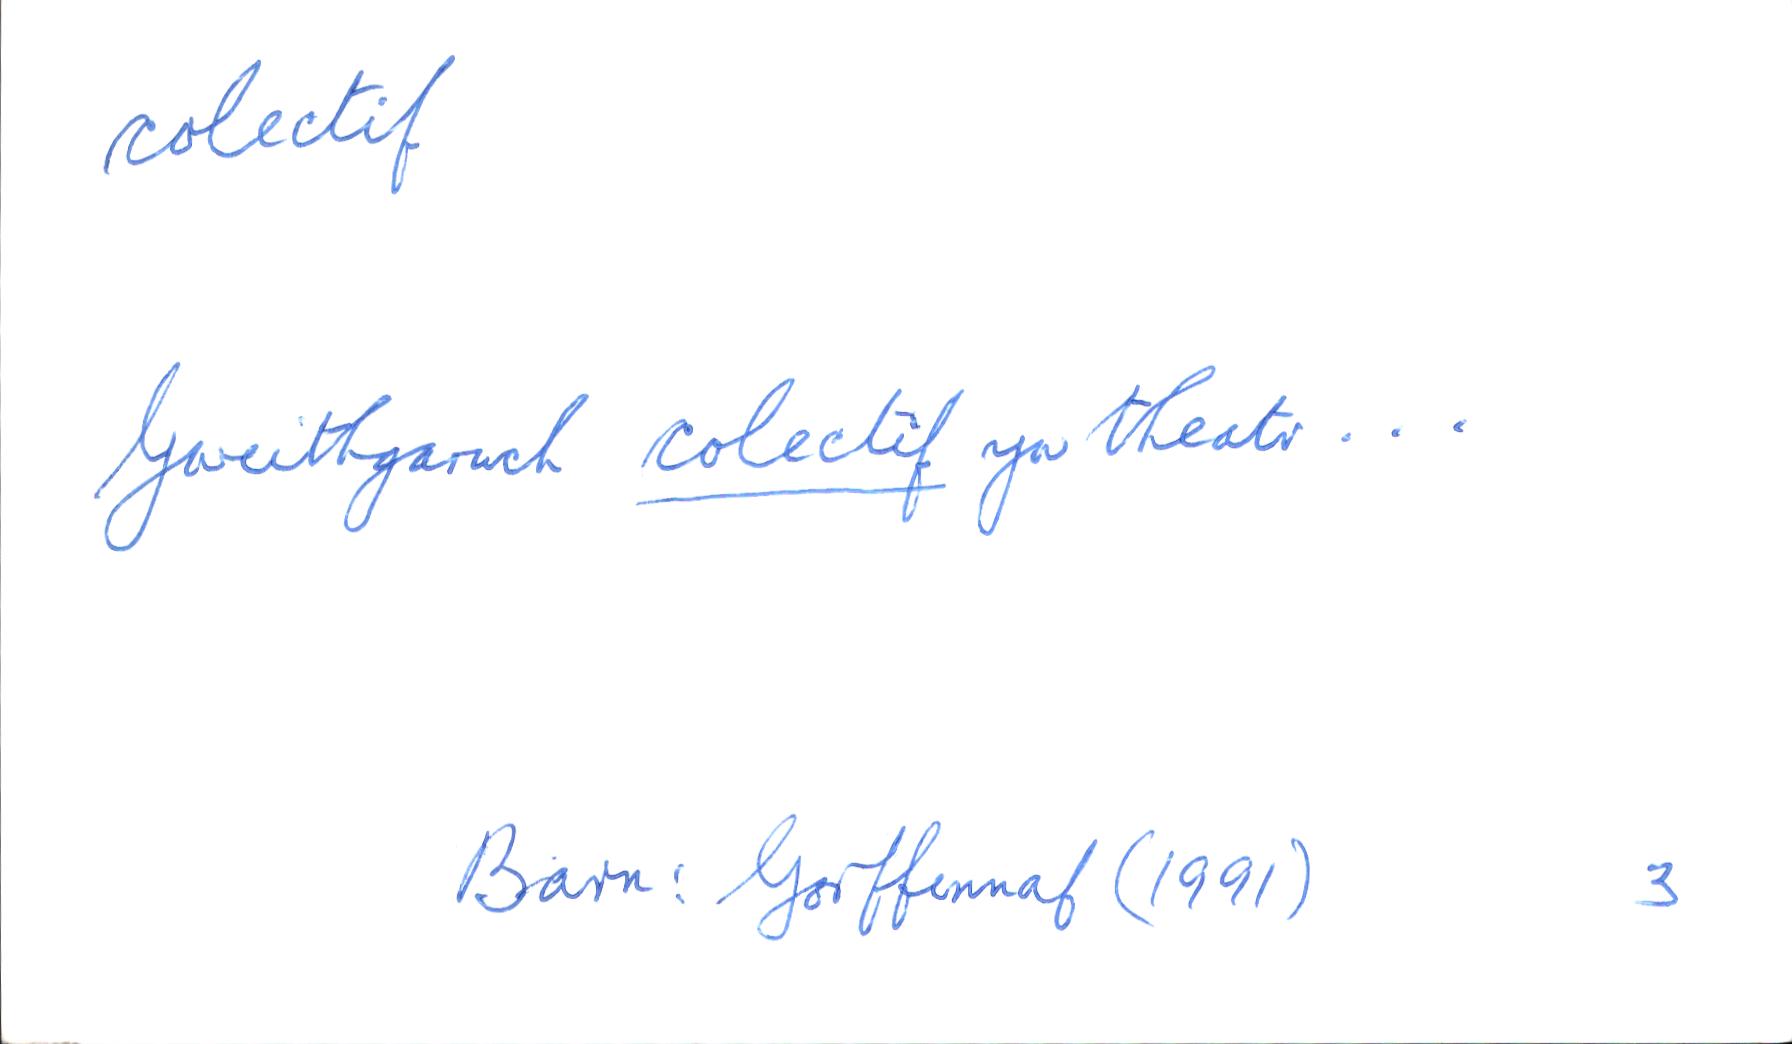 colectif
Gweithgarwch colectif yw theatr . . .
Barn: Gorffennaf (1991) 3